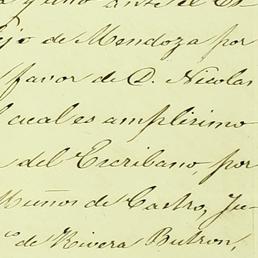 ante el Es
ejo de Mendoza por
favor de D. Nicolas
l cual es amplisimo
del Escribano, por
Muños de Castro, Ju-
co de Rivera Butron,